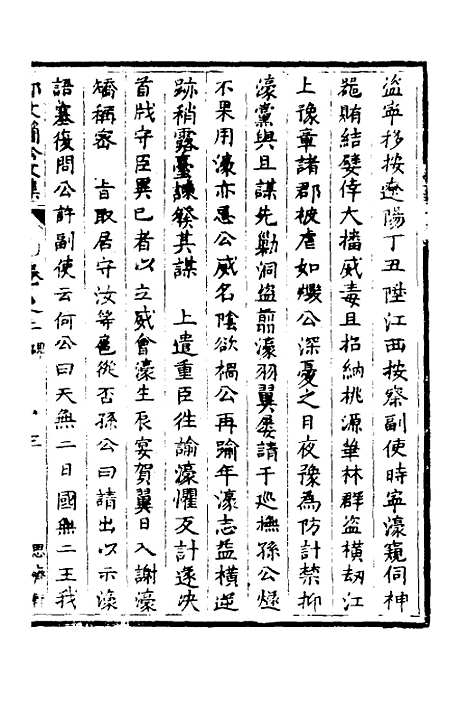 盜寧移按遼陽丁丑陞江西按察副使時寧濠窺伺神
噐賄結嬖倖大播威毒且招納桃源華林群盜橫劫江
上豫章諸郡被虐如燬公深憂之日夜豫為防計禁抑
濠黨與且謀先勦洞盜翦濠羽翼屡請于巡撫孫公燧
不果用濠亦愚公威名陰欲禍公再踰年濠志益橫逆
跡稍露臺諫發其謀　上遣重臣徃諭濠懼反計遂决
首戕守臣異已者以立威會濠生辰宴賀翼日入謝濠
矯稱密　旨取居守汝等扈從否孫公曰請出以示濠
語塞復問公許副使云何公曰天無二日國無二王我
文簡公文集　卷之二　碑